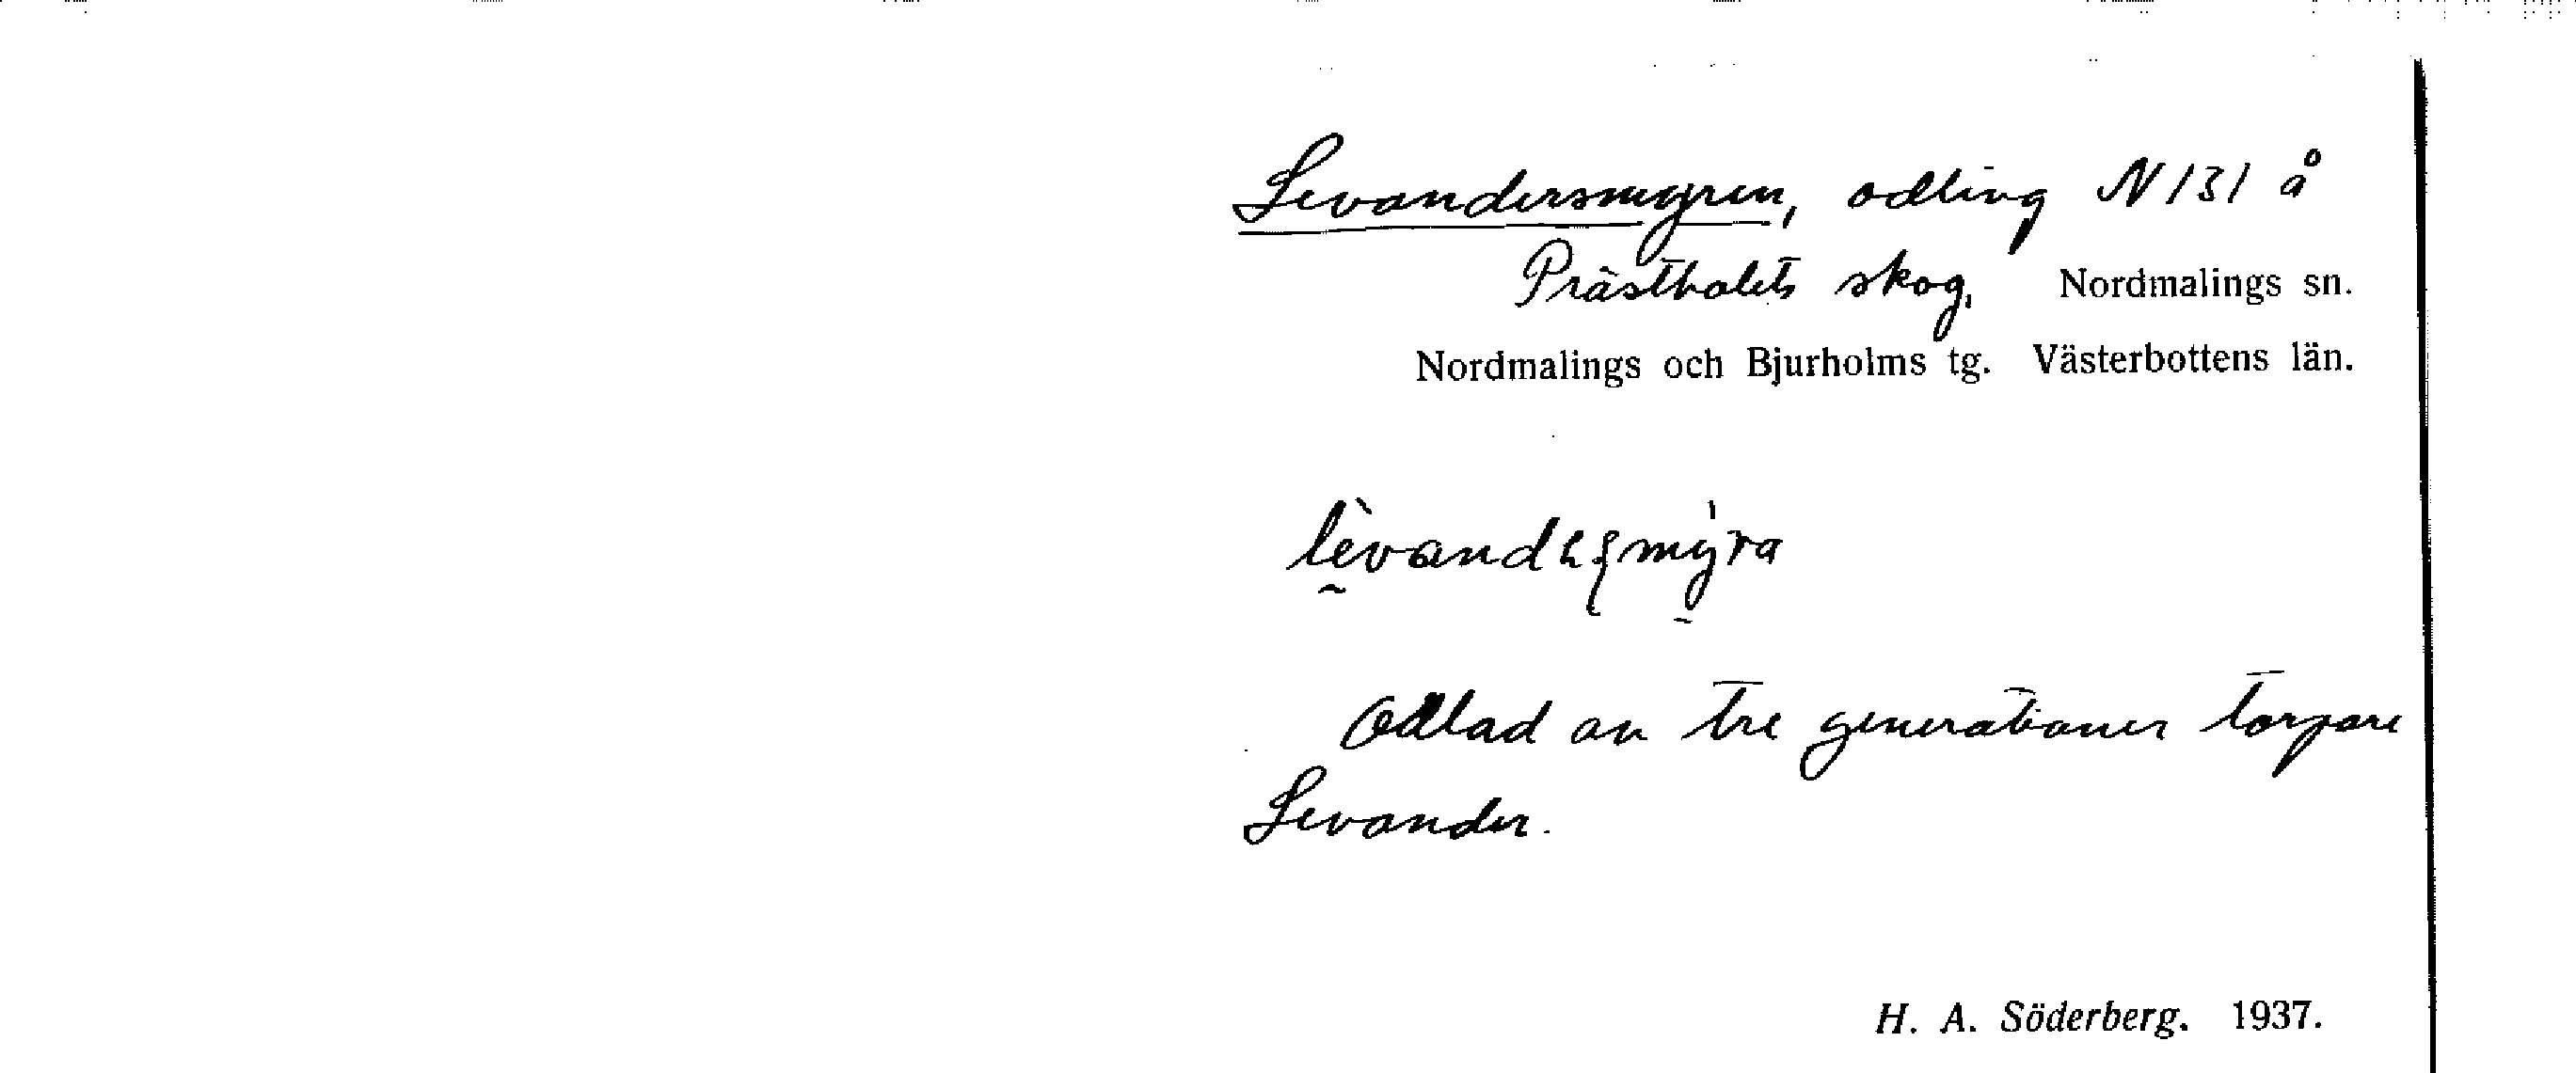 Levandersmyren, odling N 131 å
Prästbolets skog, Nordmalings sn.
Nordmalings och Bjurholms tg. Västerbottens län.
Odlad av tre generationer torpare
Levander.
H. A. Söderberg. 1937.